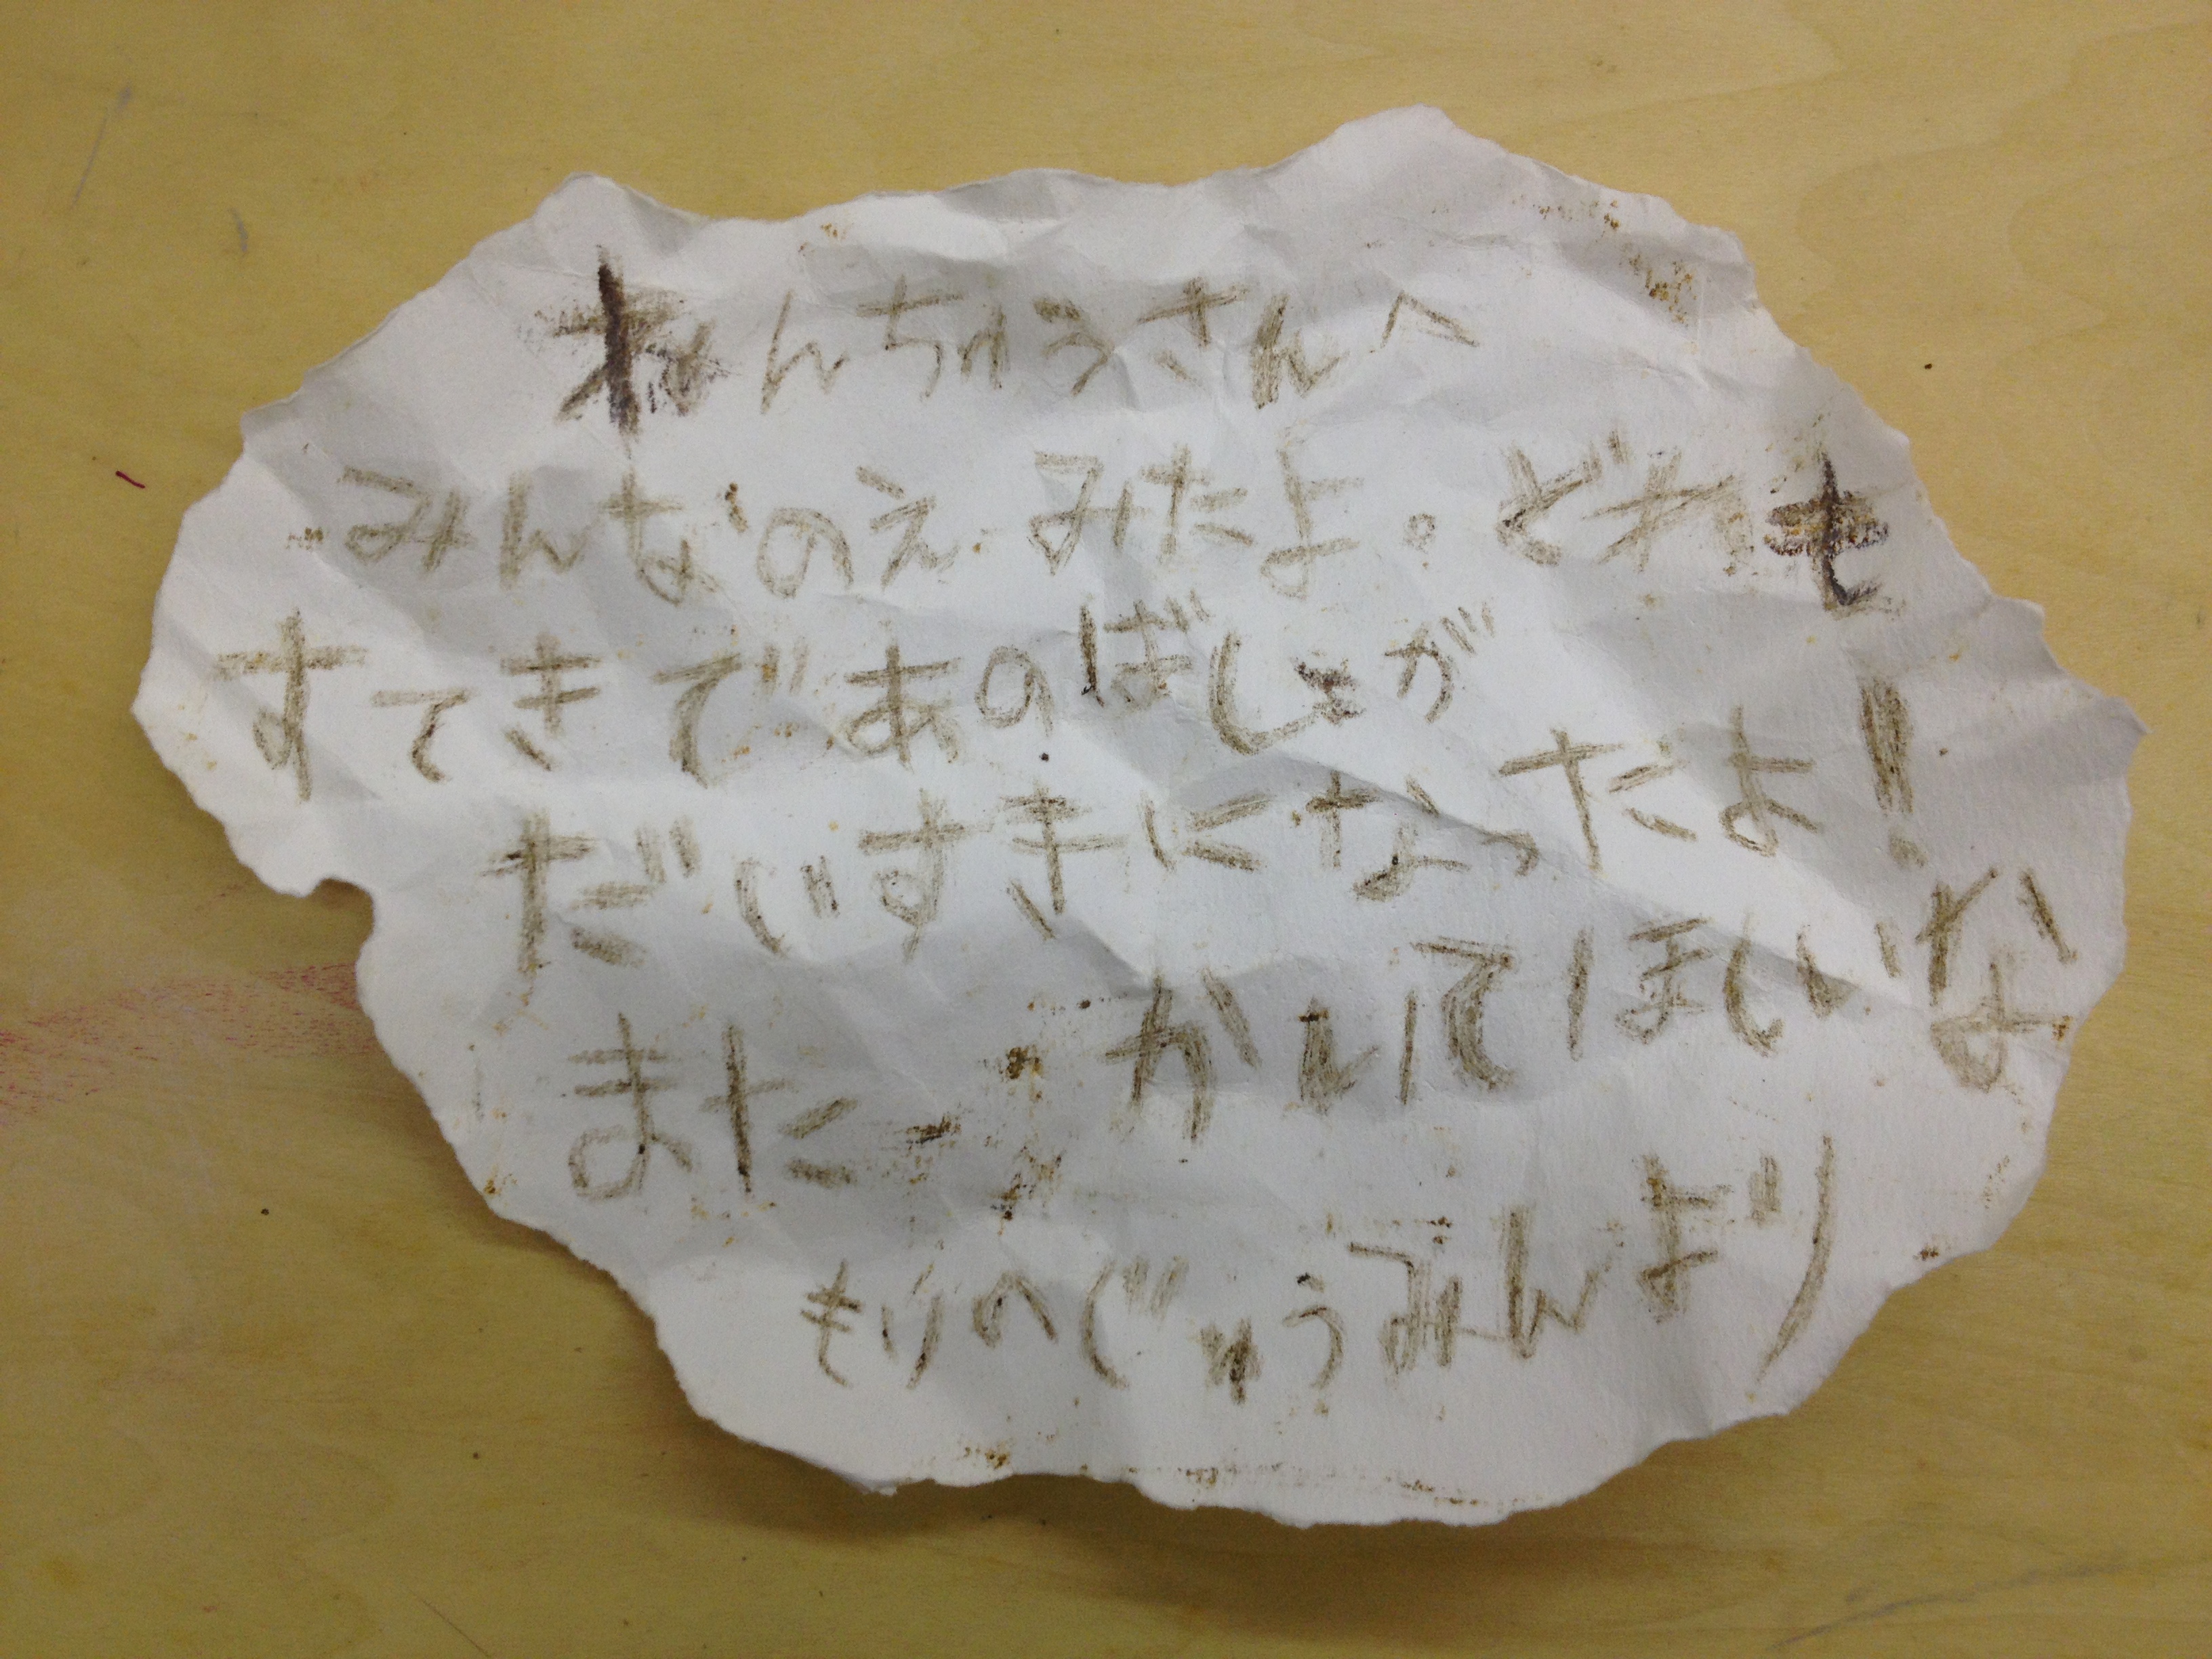 ねんちゅうさんへ
みんなのえ みたよ。どれも
すてきで あのばしょが
だいすきになったよ!
また かいてほしいな
もりのじゅうみんより